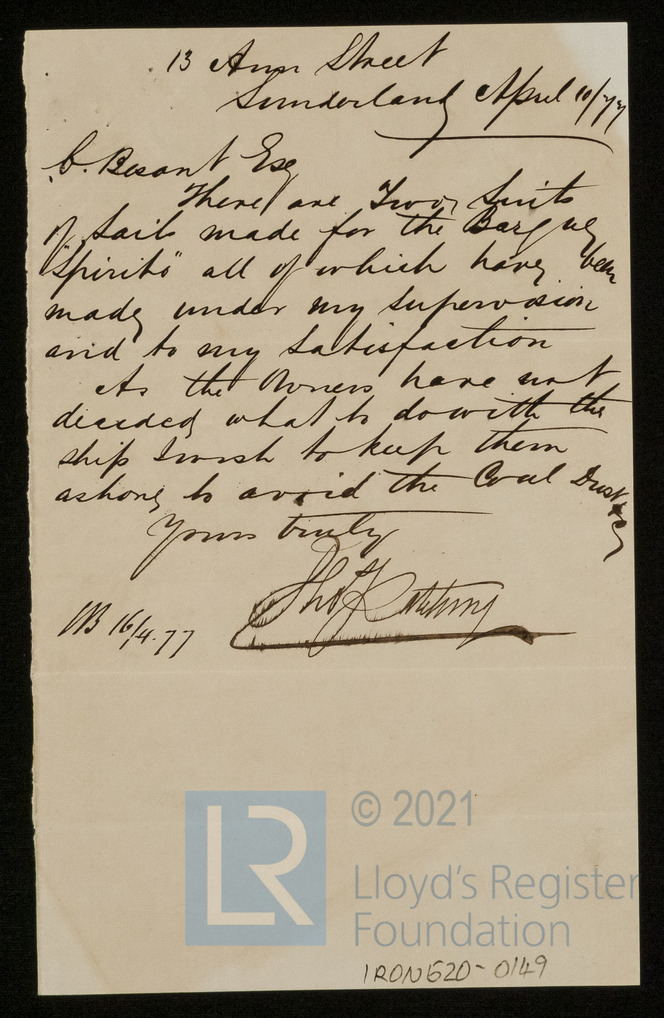 13 Ann Street
Sunderland April 10/77
C. Besant Esq
There are Two Suits
of Sails made for the Barque
"Spirito" all of which have been
made under my supervision
and to my satisfaction
As the Owners have not
decided what to do with the
ship I wish to keep them
ashore to avoid the Coal Dust &c
Yours truly
Thos
16/4.77
LR
© 2021
Lloyd's Register
Foundation
IRON620-0149